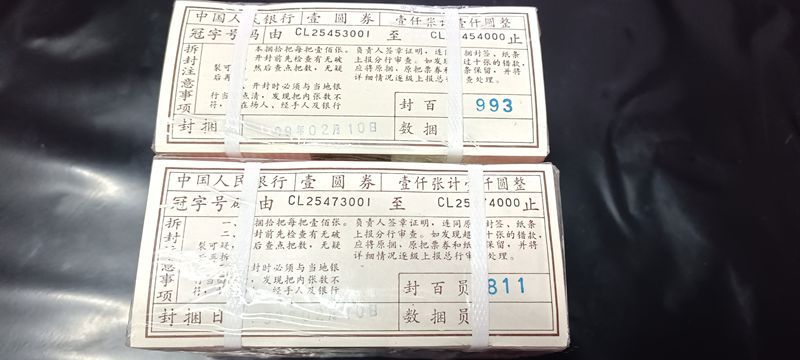 中国人民银行 壹圆券 壹仟张计壹仟圆整
冠字号码由 CL25453001 至 CL 454000止
拆封注意事项
本捆拾把每把壹佰张。
开封前先检查有无破
裂可
然后查点把数,无疑
后再
开封时必须与当地银
行当 点清,发现把内张数不
符, 在场人、经手人及银行
负责人签章证明,连 封签、纸条
上报分行审查。如发 过十张的错款,
应将原捆、原把票 条保留,并将
详细情况逐级上报总 查处理。
封百 993
封捆 09年02月10日 数捆
中国人民银行 壹圆券 壹仟张计壹仟圆整
冠字号码由 CL25473001 至 CL25 74000止
拆封注意事项
一、 捆拾把每把壹佰张。
封前先检查有无破
裂可 疑,
后查点把数,无疑
后再拆
封时必须与当地银
行当 ,发现把内张数不
符, 、经手人及银行
负责人签章证明,连同原 封签、纸条
上报分行审查。如发现超 十张的错款,
应将原捆、原把票券和纸 保留,并将
详细情况逐级上报总行 处理。
封百员 811
封捆日 10日 数捆员